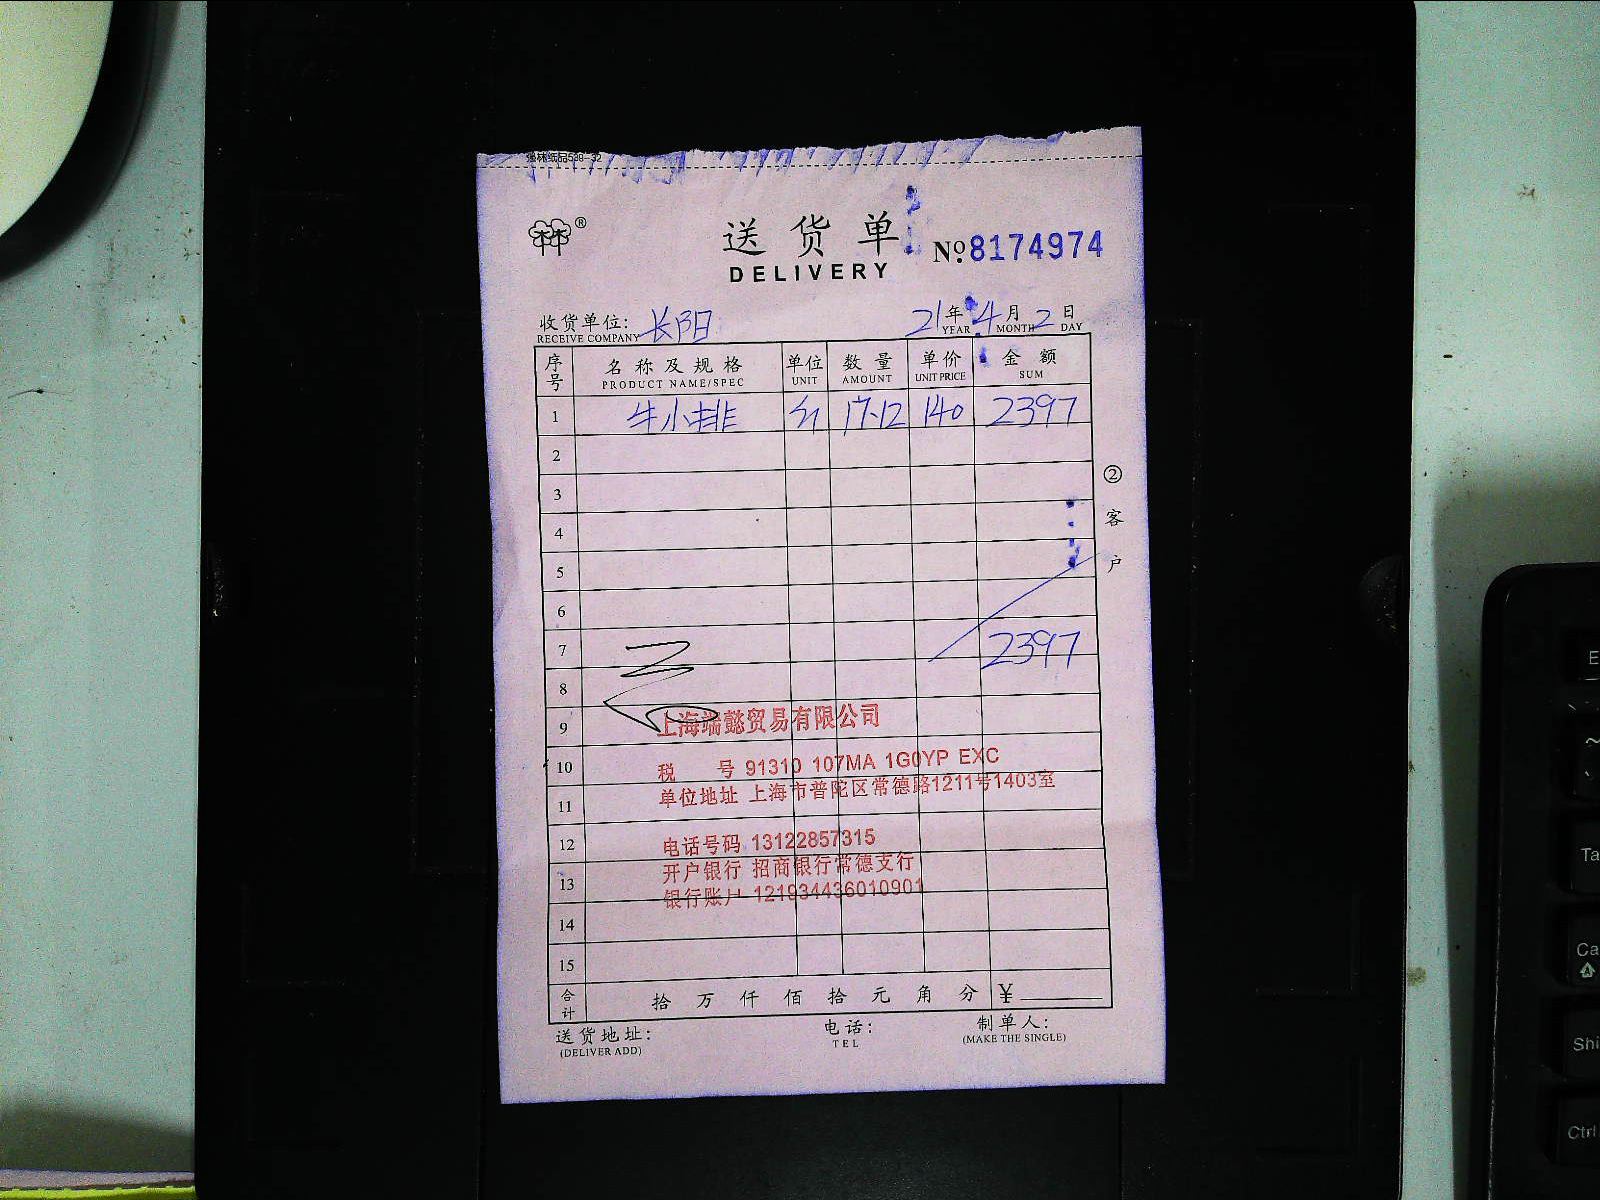 强林纸品530-32
®
送货单
DELIVERY
No.8174974
收货单位: 长阳 21年4月2日
RECEIVE COMPANY YEAR MONTH DAY
序号 名称及规格 单位 数量 单价 金额
PRODUCT NAME/SPEC UNIT AMOUNT UNIT PRICE SUM
1 牛小排 斤 17.12 140 2397
2
3
4
5
6
7 2397
8
9
10
11
12
13
14
15
②客户
上海端懿贸易有限公司
税 号 91310 107MA 1G0YP EXC
单位地址 上海市普陀区常德路1211号1403室
电话号码 13122857315
开户银行 招商银行常德支行
银行账户 121934436010901
合计 拾 万 仟 佰 拾 元 角 分 ¥
送货地址: 电话: 制单人:
(DELIVER ADD) TEL (MAKE THE SINGLE)
E
Ta
Ca
Shi
Ctrl